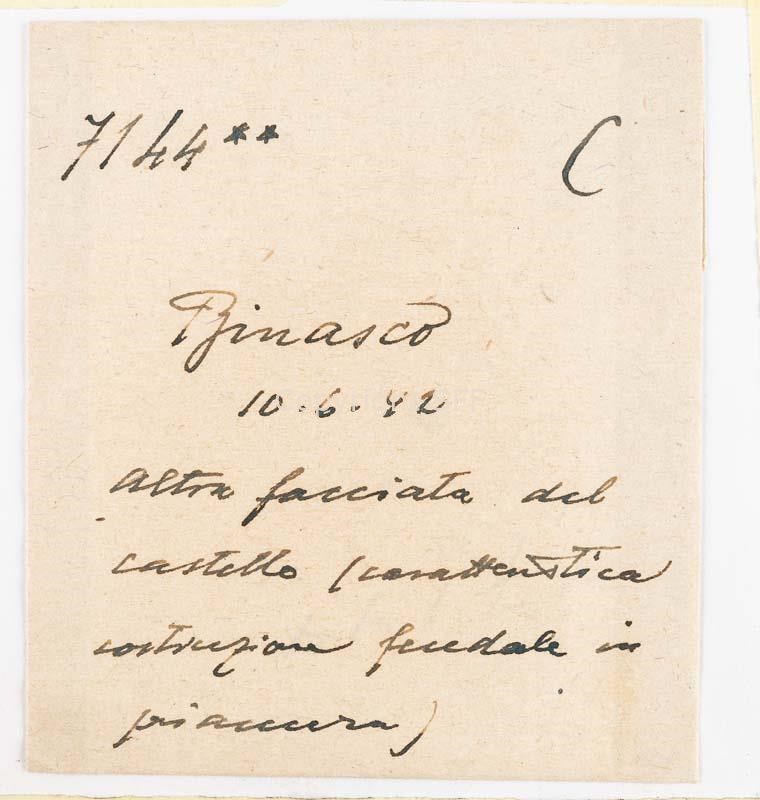 7144** C
Binasco
10.6.42
Altra facciata del
castello (caratteristica
costruzione feudale in
pianura)